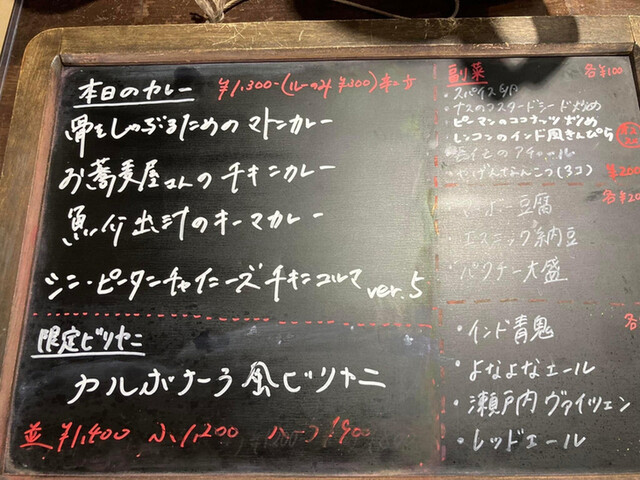 本日のカレー ¥1,300-(ルーのみ ¥300)
骨をしゃぶるためのマトンカレー
お蕎麦屋さんのチキンカレー
魚介出汁のキーマカレー
シン・ピーターチャイニーズチキンコルマ ver.5
限定ビリヤニ
カルボナーラ風ビリヤニ
並 ¥1,400 小 1,200 ハーフ 900
副菜 各¥100
・スパイス
・ナスのマスタードシード炒め
・ピーマンのココナッツ炒め
・レンコンのインド風きんぴら
・やげんなんこつ(3コ) ¥200
各¥20
・マーボー豆腐
・エスニック納豆
・パクチー大盛
各
・インド青鬼
・よなよなエール
・瀬戸内ヴァイツェン
・レッドエール